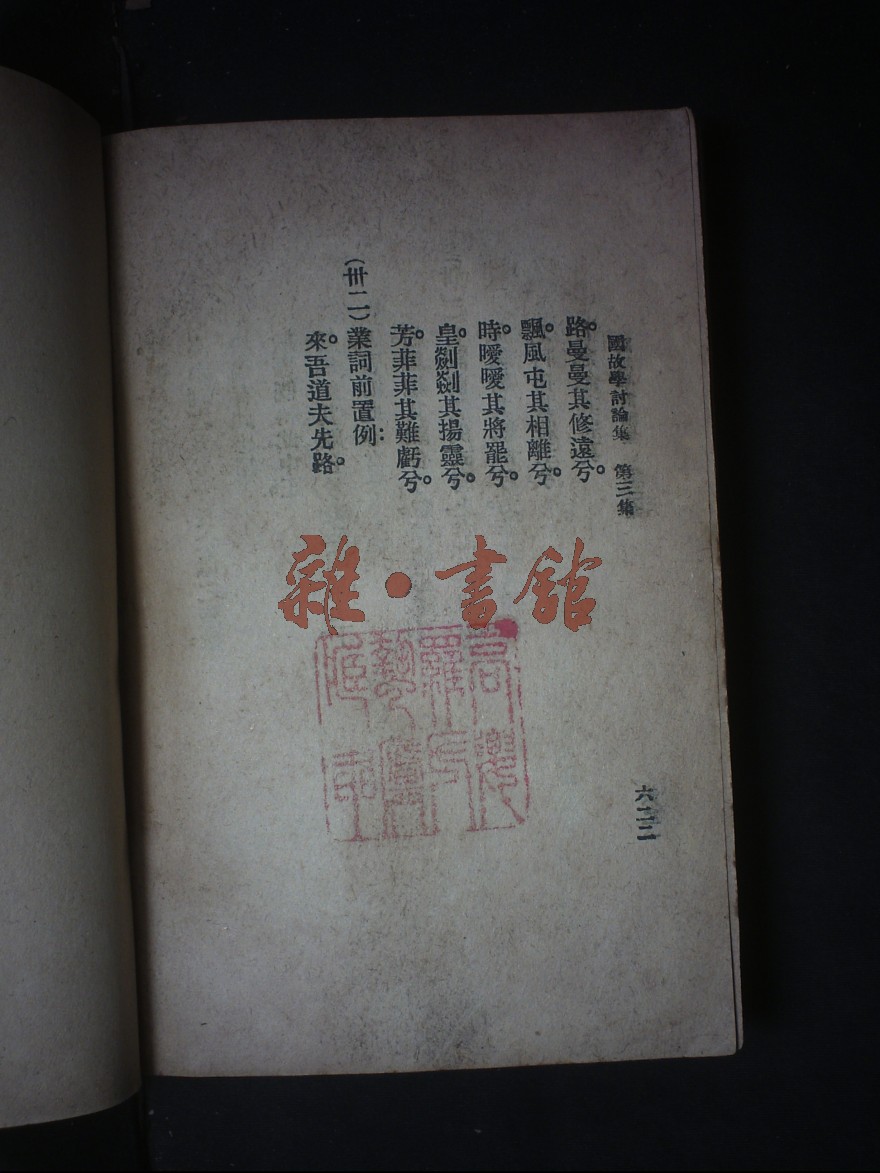 國故學討論集 第三集
路曼曼其修遠兮。
飄風屯其相離兮。
時曖曖其將罷兮。
皇剡剡其揚靈兮。
芳菲菲其難虧兮。
(卅二)業詞前置例：
來吾道夫先路。
六二二
雜·書館